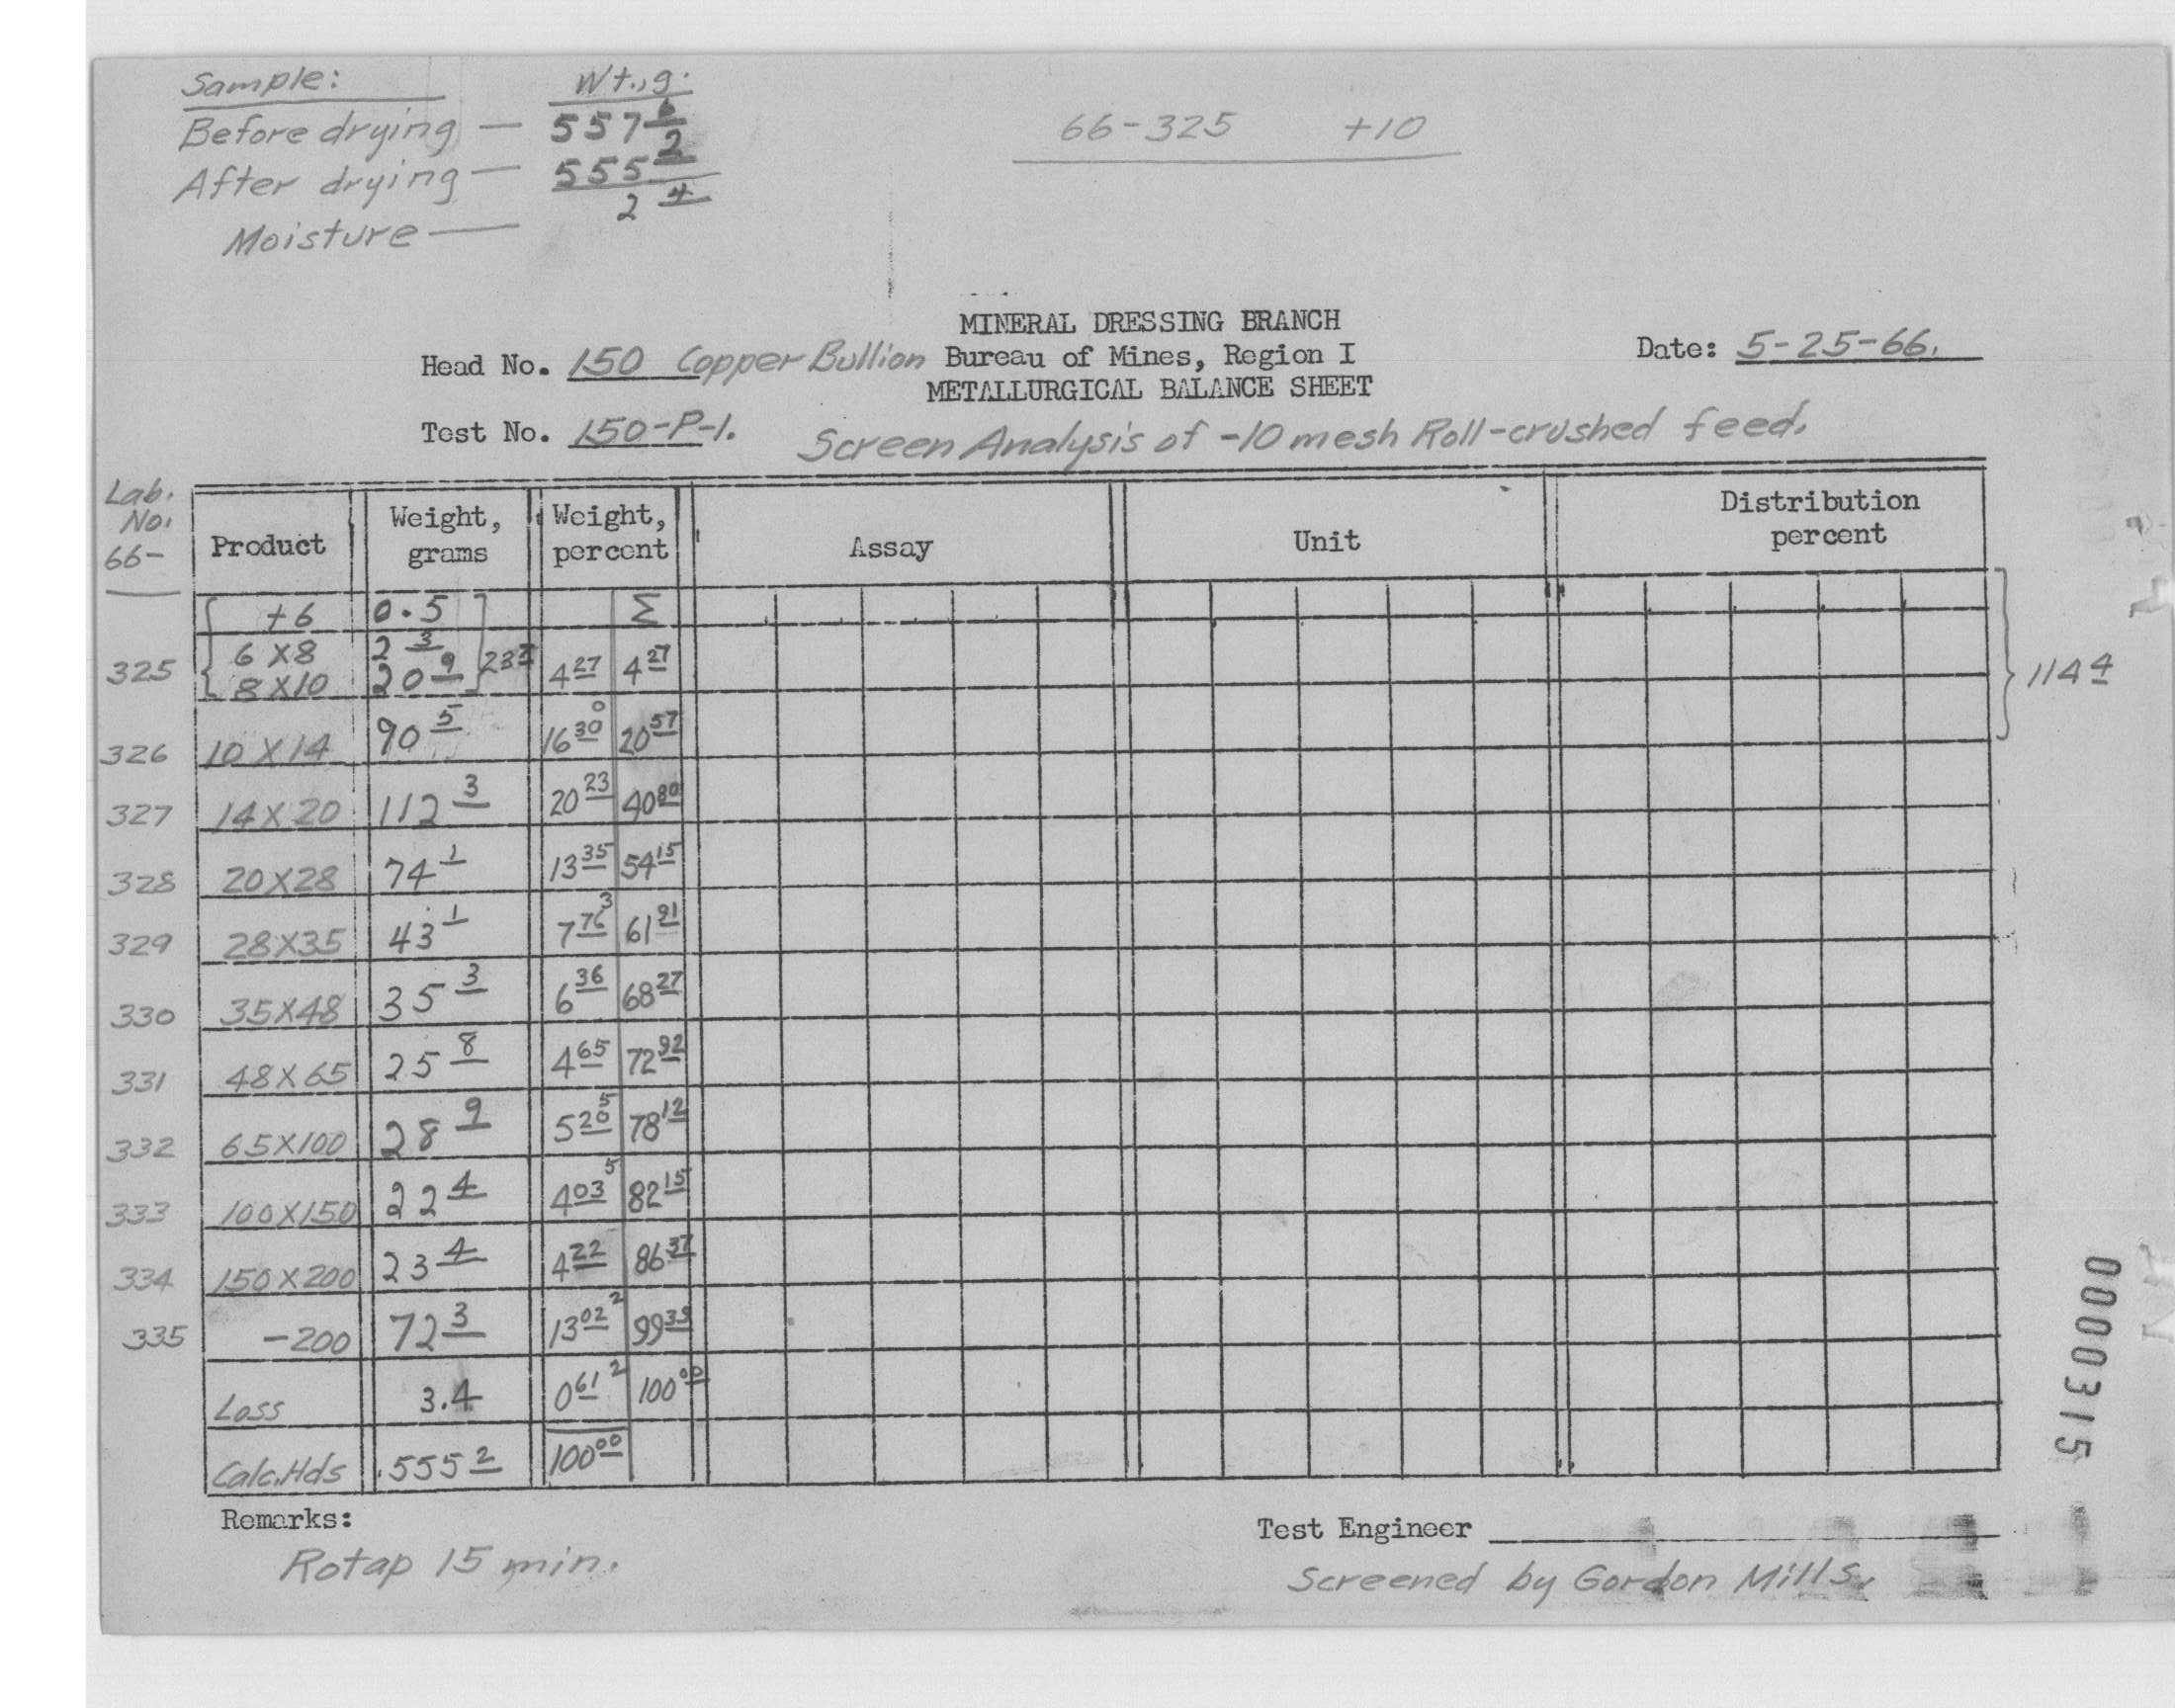 Sample: Wt., g.
Before drying — 557 6
After drying — 555 2
Moisture — 2 4
66-325 +10
MINERAL DRESSING BRANCH
Head No. 150 Copper Bullion Bureau of Mines, Region I Date: 5-25-66.
METALLURGICAL BALANCE SHEET
Test No. 150-P-1. Screen Analysis of -10 mesh Roll-crushed feed.
Lab. No. 66- Product Weight, grams Weight, percent Assay Unit Distribution percent
+6 0.5 Σ
6 X 8 2 3
325 8 X 10 20 9 23 7 4 27 4 27 114 4
326 10 X 14 90 5 16 30 0 20 57
327 14 X 20 112 3 20 23 40 80
328 20 X 28 74 1 13 35 54 15
329 28 X 35 43 1 7 76 3 61 91
330 35 X 48 35 3 6 36 68 27
331 48 X 65 25 8 4 65 72 92
332 65 X 100 28 9 5 20 5 78 12
333 100 X 150 22 4 4 03 5 82 15
334 150 X 200 23 4 4 22 86 37
335 -200 72 3 13 02 2 99 39
Loss 3.4 0 61 2 100 00
Calc. Hds 555 2 100 00
Remarks: Test Engineer
Rotap 15 min. Screened by Gordon Mills.
0000315